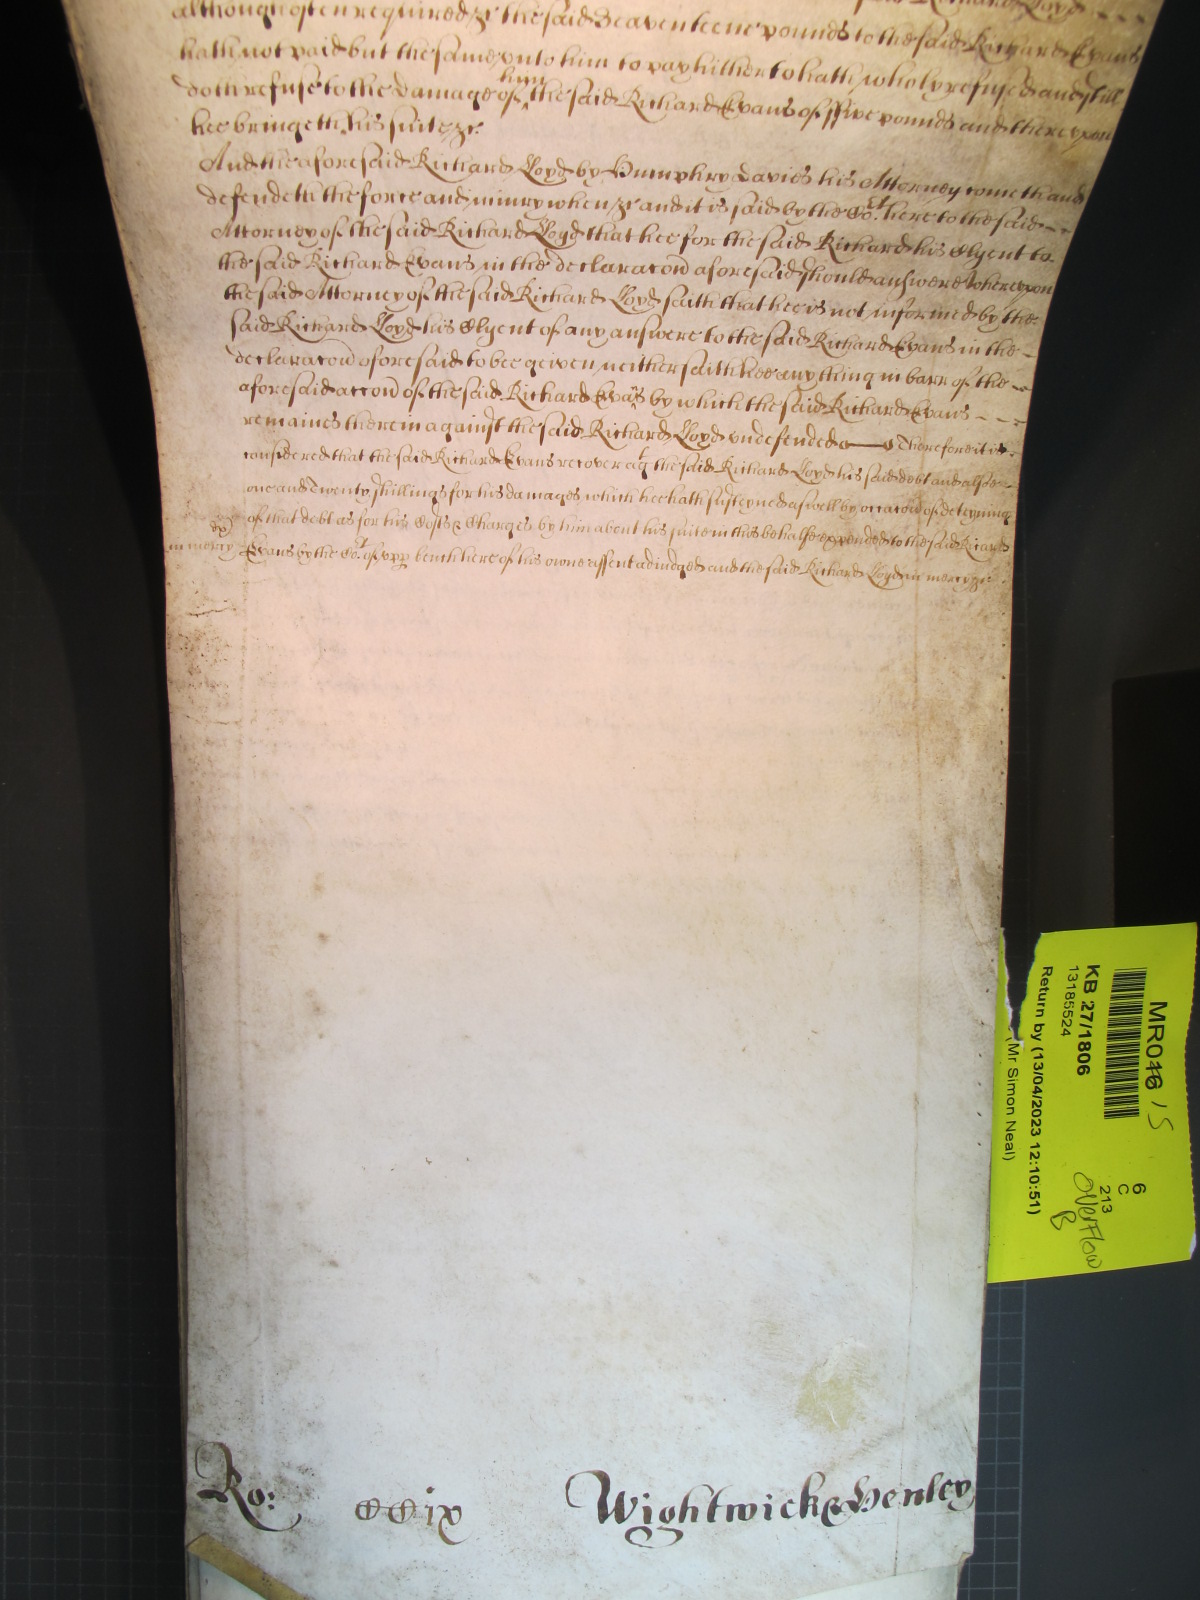 although often required &c the said Seaventeene pounds to the said Richard Evans
hath not paid but the same unto him to pay hitherto hath wholy refused and still
doth refuse to the damage of him the said Richard Evans of ffive pounds and thereupon
hee bringeth his suite &c
And the aforesaid Richard Lloyd by Humphry Davies his Attorney cometh and
defendeth the force and iniury when &c and it is said by the Cot here to the said
Attorney of the said Richard Lloyd that hee for the said Richard his Clyent to
the said Richard Evans in the declaracon aforesaid should answere Whereupon
the said Attorney of the said Richard Lloyd saith that hee is not informed by the
said Richard Lloyd his Clyent of any answere to the said Richard Evans in the
declaracon aforesaid to bee geiven neither saith hee any thing in barr of the
aforesaid accon of the said Richard Evans by which the said Richard Evans
remaines therein against the said Richard Lloyd undefended Therefore it is
considered that the said Richard Evans recover agt the said Richard Lloyd his said debt and alsoe
one and Twenty shillings for his damages which hee hath susteyned aswell by occacon of deteyning
of that debt as for his Costs & Charges by him about his suite in this behalfe expended to the said Ricard
in mercy Evans by the Cot of upp bench here of his owne assent adiudged and the said Richard Lloyd in mercy &c
Ro: CCix Wightwick & Henley
MR046 15
KB 27/1806
13185524
Return by (13/04/2023 12:10:51)
(Mr Simon Neal)
6
C
213
Overflow
B